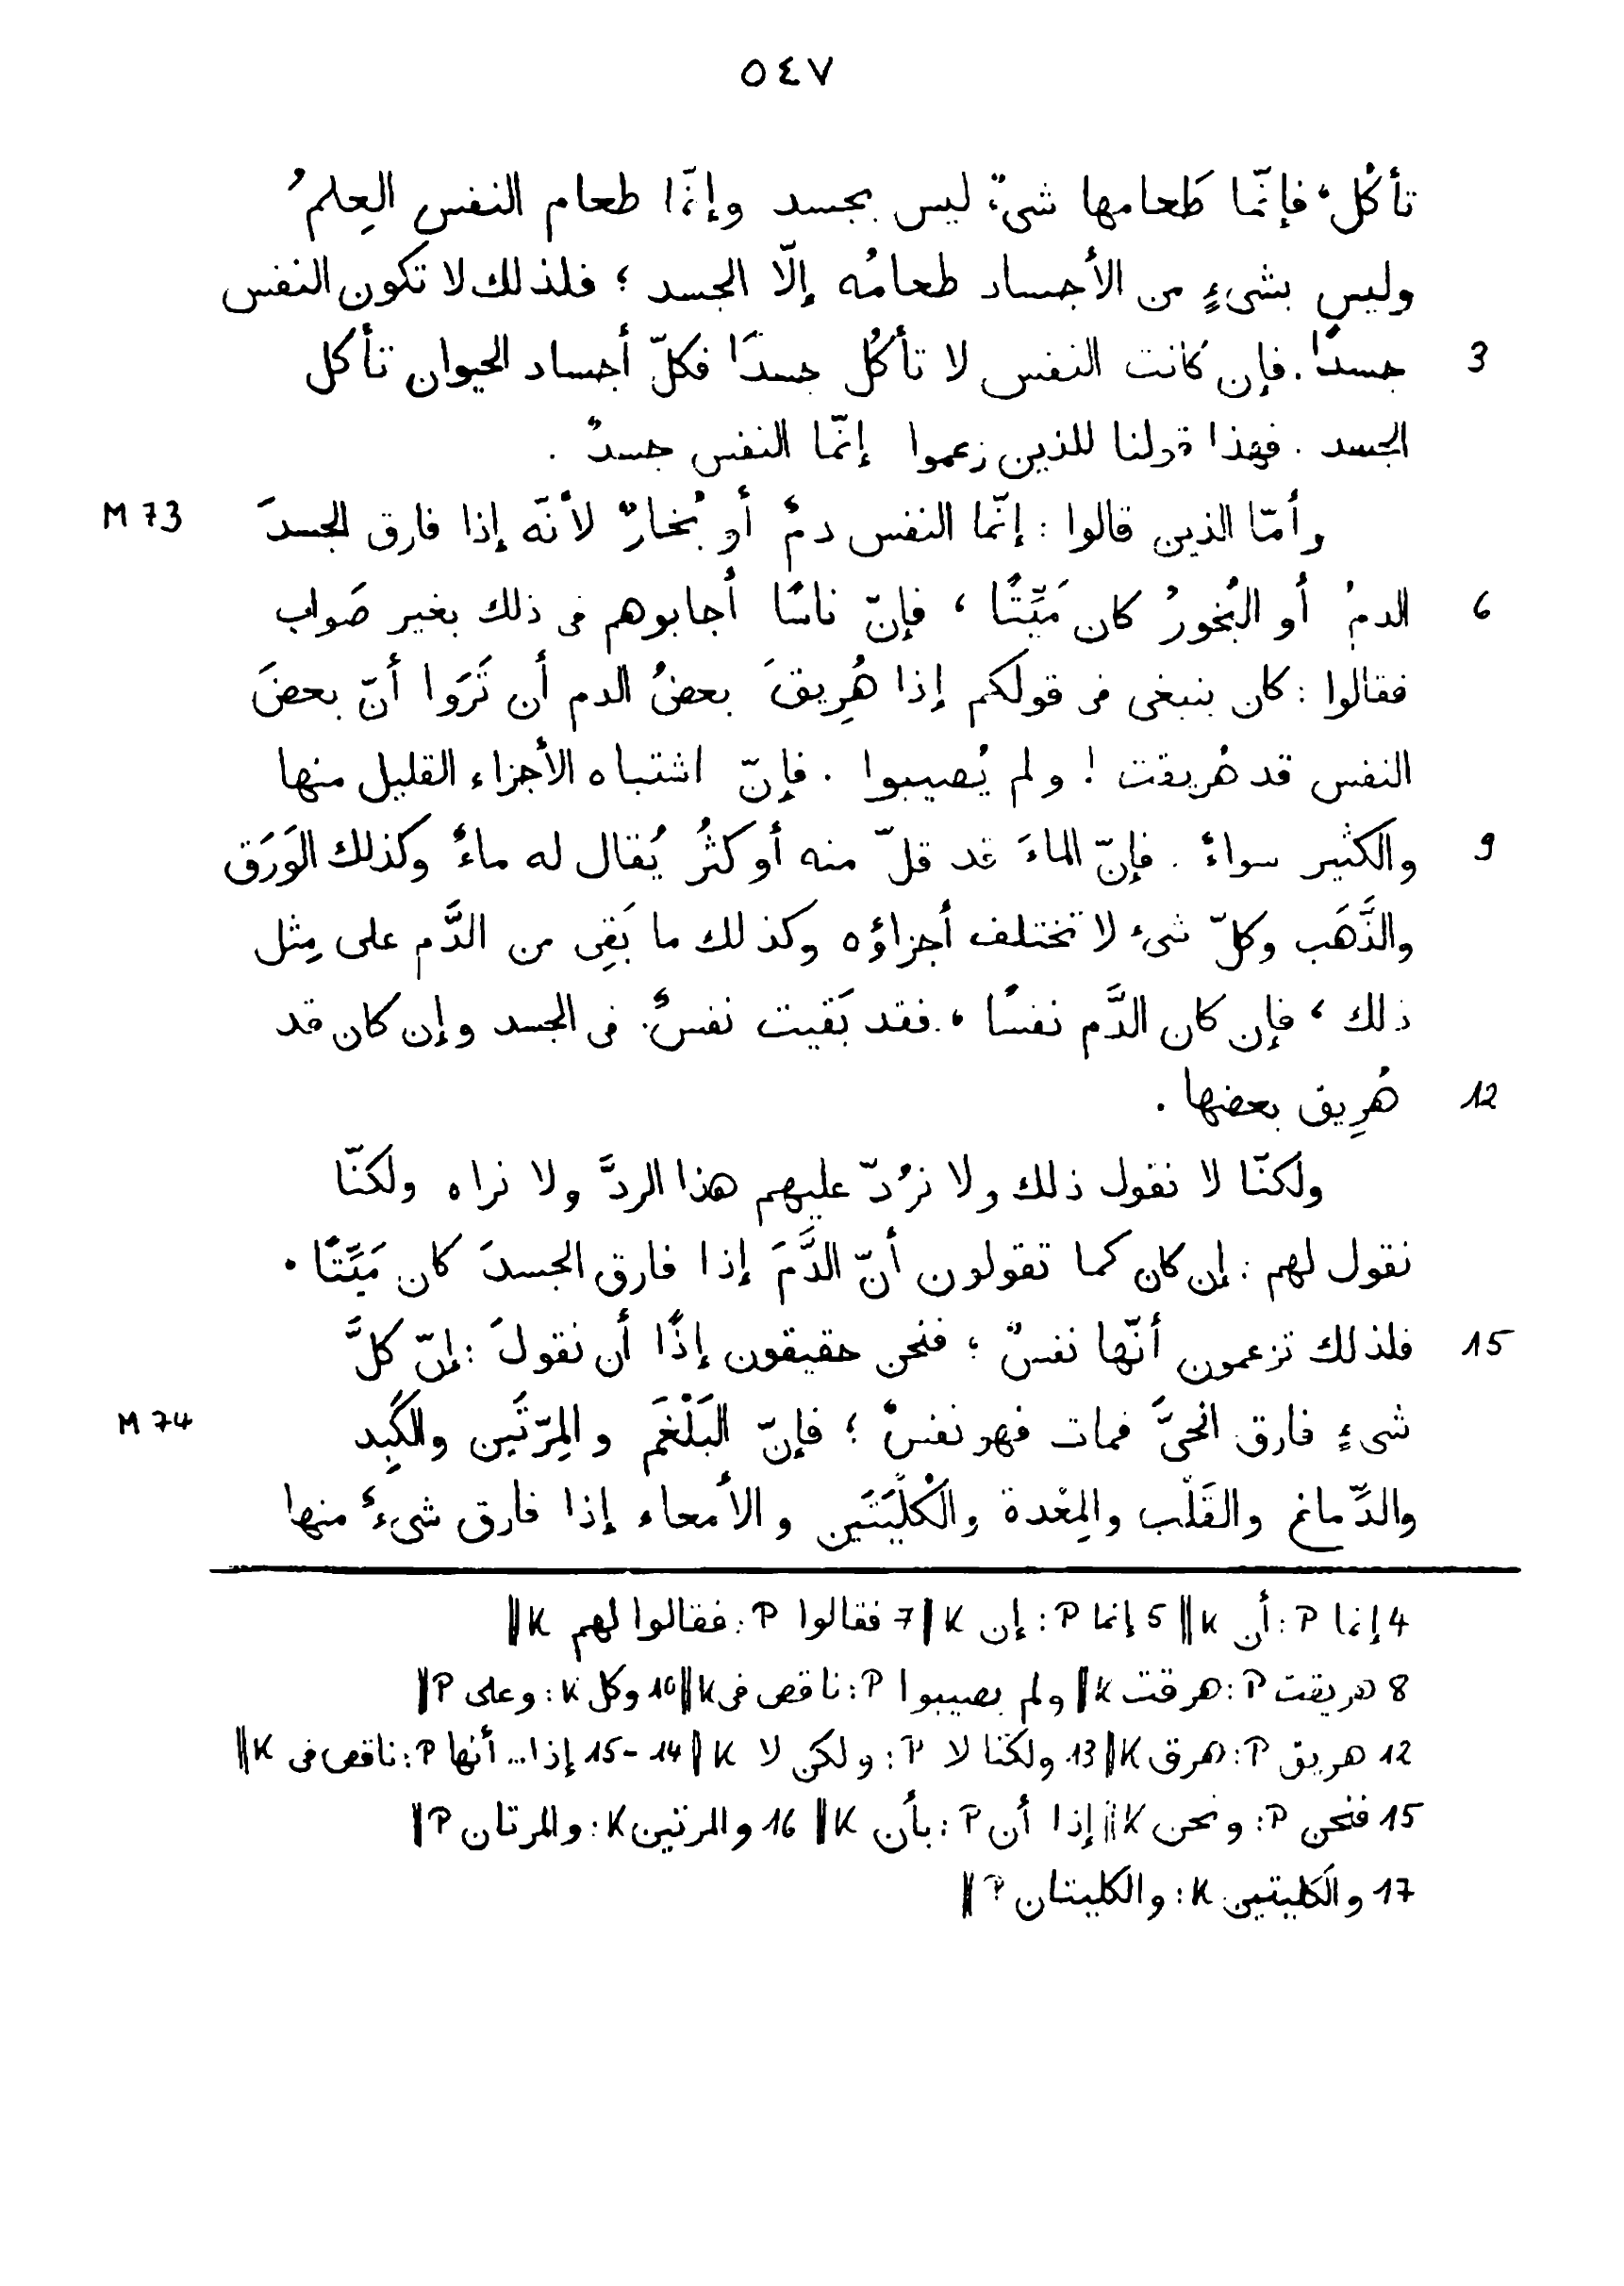 ٥٤٧
تأكُل، فإنّما طَعامها شىءٌ ليس بجسد وإنّما طعام النفسِ العِلمُ
وليس بشىءٍ من الأجساد طعامُه إلّا الجسد ؛ فلذلك لا تكون النفس
جسدًا . فإن كانت النفس لا تأكُل جسدًا فكلّ أجساد الحيوان تأكل 3
الجسد . فهذا قولنا للذين زعموا إنّما النفس جسدٌ .
وأمّا الذين قالوا : إنّما النفس دمٌ أو بُخارٌ لأنّه إذا فارق الجسدَ M 73
الدمُ أو البُخورُ كان مَيِّتًا ، فإنّ ناسًا أجابوهم فى ذلك بغير صَواب 6
فقالوا : كان ينبغى فى قولكم إذا هُرِيقَ بعضُ الدم أن تَرَوا أنّ بعضَ
النفس قد هُريقت ! ولم يُصيبوا . فإنّ اشتباه الأجزاء القليل منها
والكثير سواءٌ . فإنّ الماءَ قد قلّ منه أو كثُر يُقال له ماءٌ وكذلك الوَرَق 9
والذَّهَب وكلّ شىء لا تختلف أجزاؤه وكذلك ما بَقِى من الدَّم على مِثل
ذلك ، فإن كان الدَّم نفسًا ، فقد بَقيت نفسٌ فى الجسد وإن كان قد
هُرِيق بعضها . 12
ولكنّا لا نقول ذلك ولا نرُدّ عليهم هذا الردَّ ولا نراه ولكنّا
نقول لهم : إن كان كما تقولون أنّ الدَّمَ إذا فارق الجسدَ كان مَيِّتًا .
فلذلك تزعمون أنّها نفسٌ ؛ فنحن حقيقون إذًا أن نقولَ : إنّ كلَّ 15
شىءٍ فارق الحىَّ فمات فهو نفسٌ ؛ فإنّ البَلْغَم والمِرّتَين والكَبِد M 74
والدِّماغ والقَلْب والمِعْدة والكُلْيَتَين والأمعاء إذا فارق شىءٌ منها
4 إنما P : أن K || 5 إنما P : إن K || 7 فقالوا P : فقالوا لهم K ||
8 هريقت P : هرقت K || ولم يصيبوا P : ناقص فى K || 10 وكل K : وعلى P ||
12 هريق P : هرق K || 13 ولكنّا لا P : ولكن لا K || 14 - 15 إذا ... أنها P : ناقص فى K ||
15 فنحن P : ونحن K || إذا أن P : بأن K || 16 والمرتين K : والمرتان P ||
17 والكليتين K : والكليتان P ||